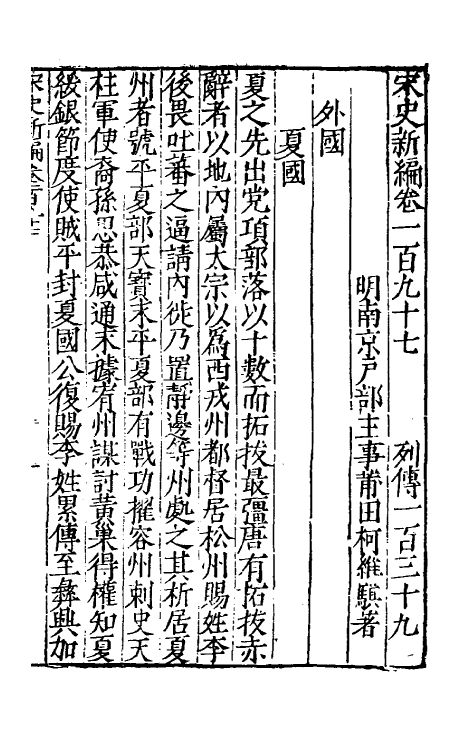 宋史新編卷一百九十七 列傳一百三十九
明南京戸部主事莆田柯維騏著
外國
夏國
夏之先出党項部落以十數而拓拔最彊唐有拓拔赤
辭者以地內屬太宗以爲西戎州都督居松州賜姓李
後畏吐蕃之逼請內徙乃置靜邊等州處之其析居夏
州者號平夏部天寶末平夏部有戰功擢容州刺史天
柱軍使裔孫思恭咸通末據宥州謀討黃巢得權知夏
綏銀節度使賊平封夏國公復賜李姓累傳至彝興加
宋史新編卷